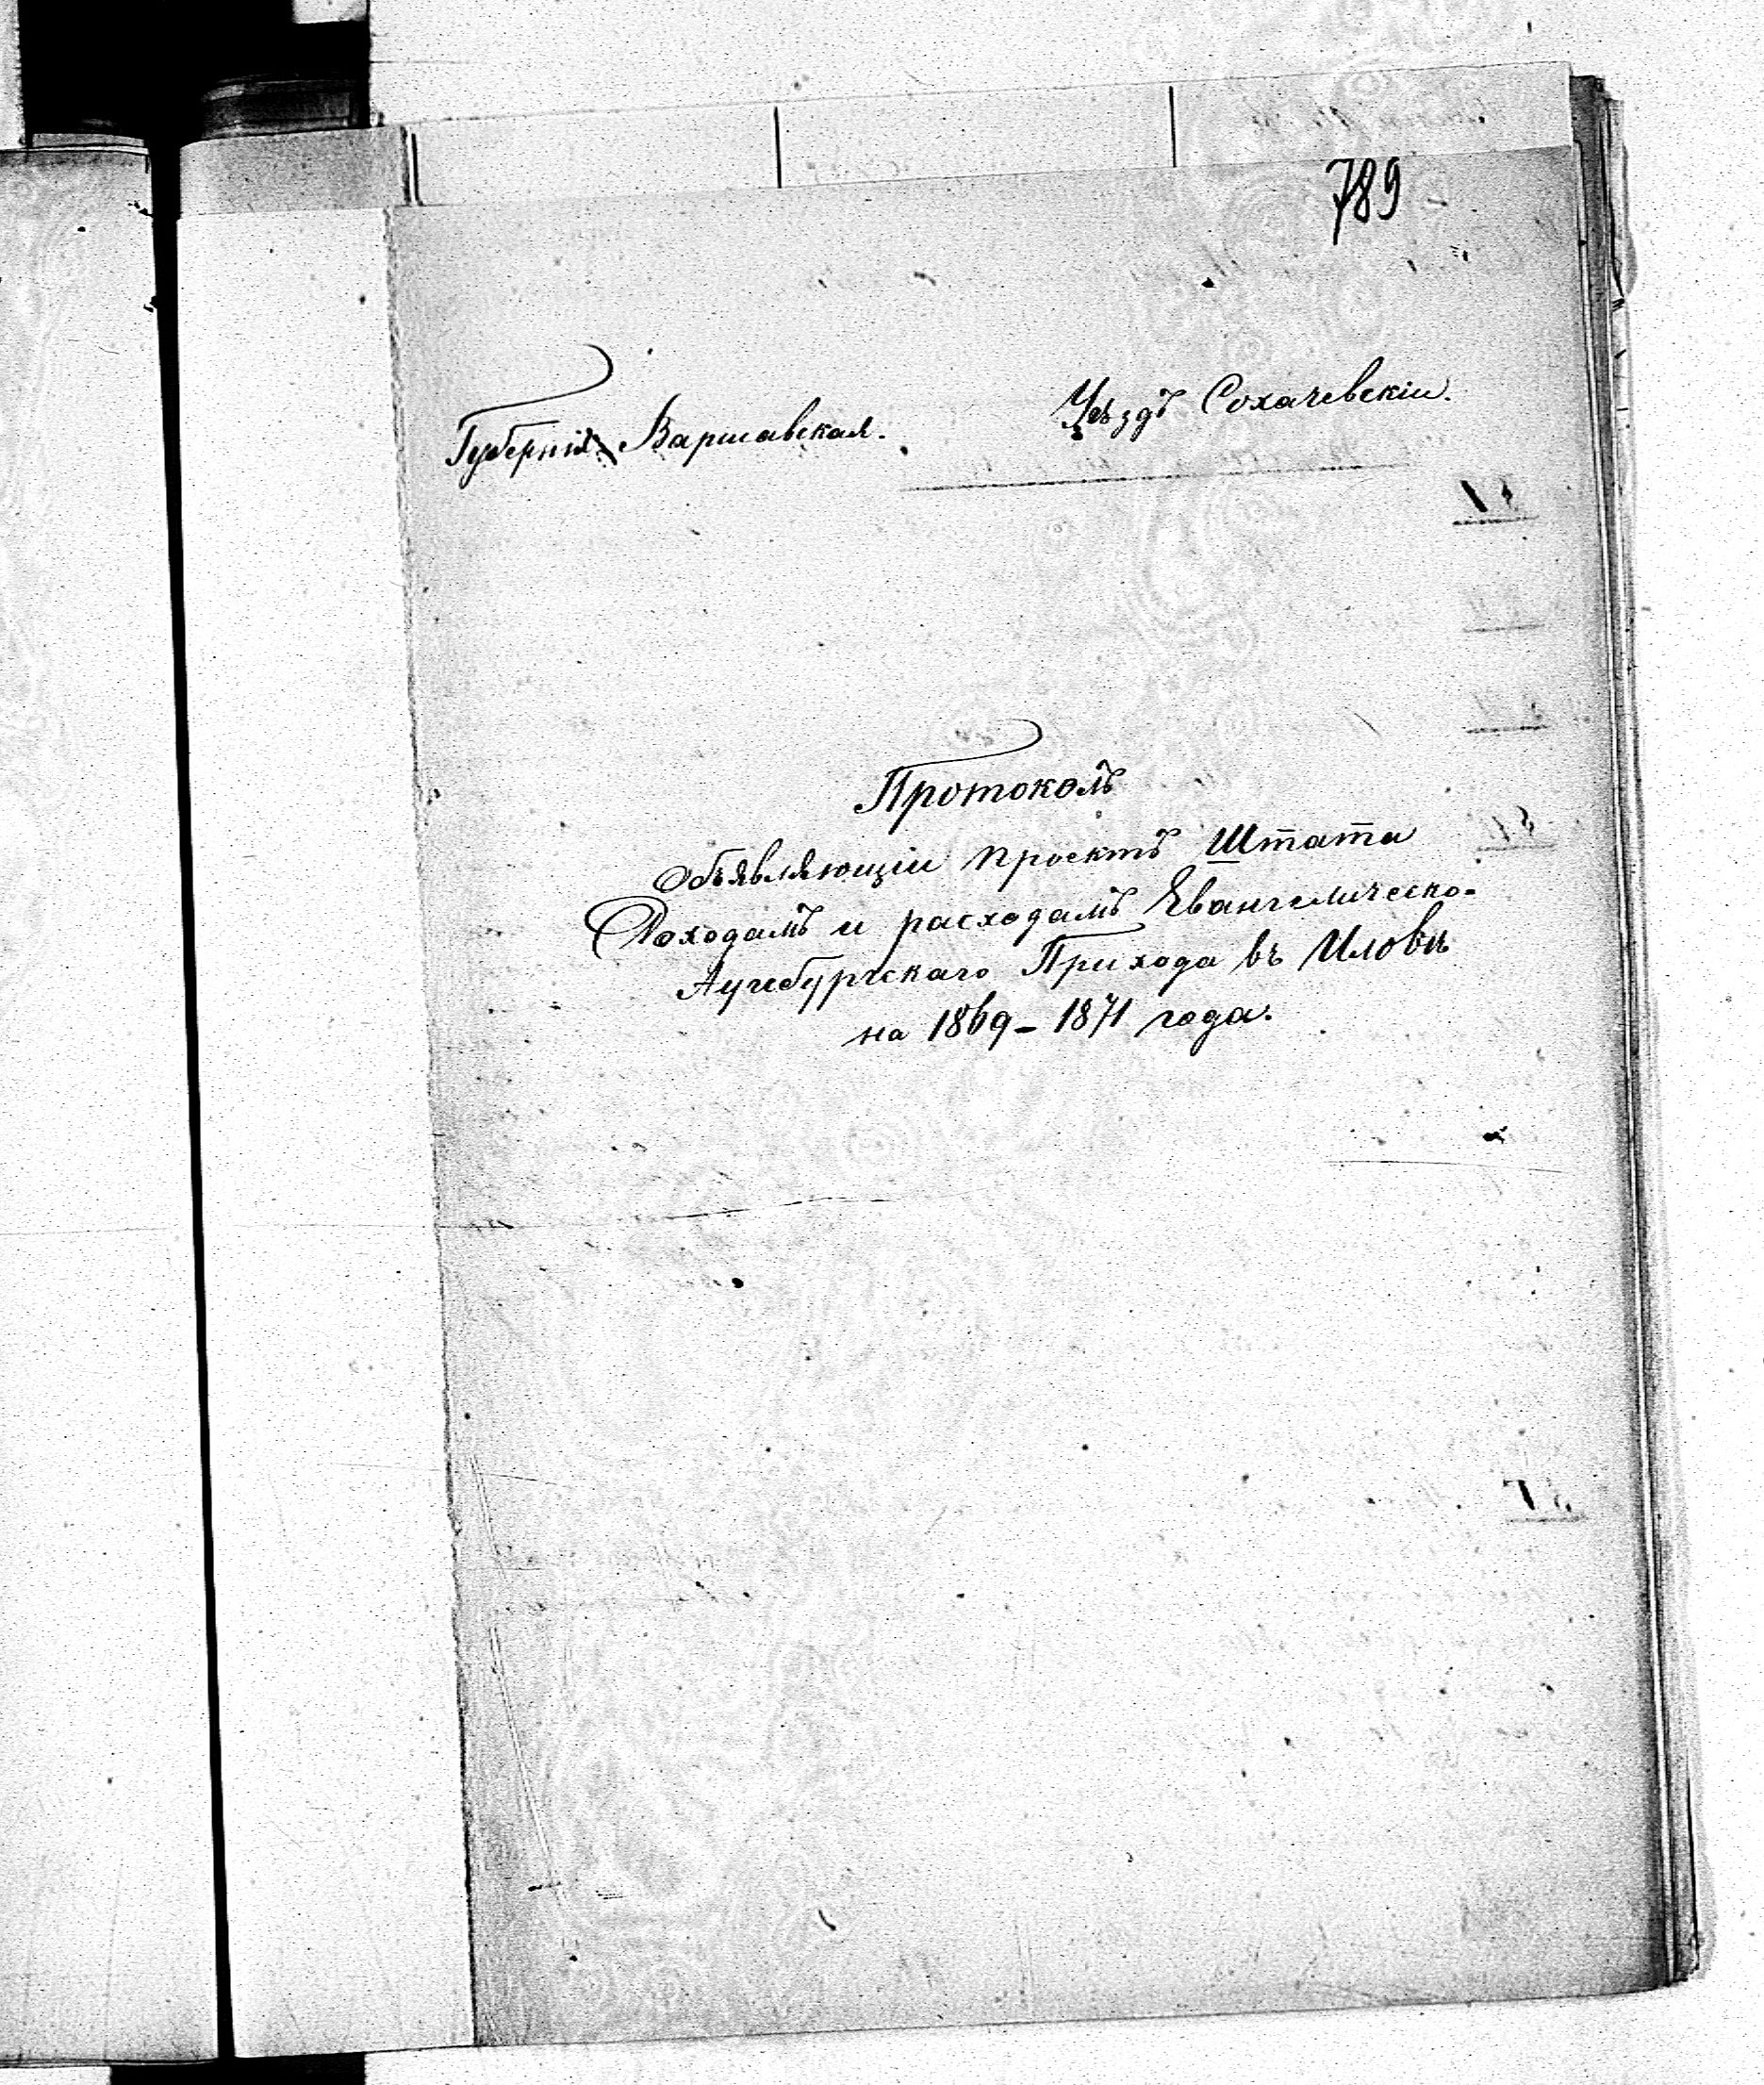 789
Губернія Варшавская. Уѣздъ Сохачевскій.
Протоколъ
Объявляющій проектъ Штата
Доходамъ и расходамъ Евангелическо-
Аугсбургскаго Прихода въ Иловѣ
на 1869–1871 года.